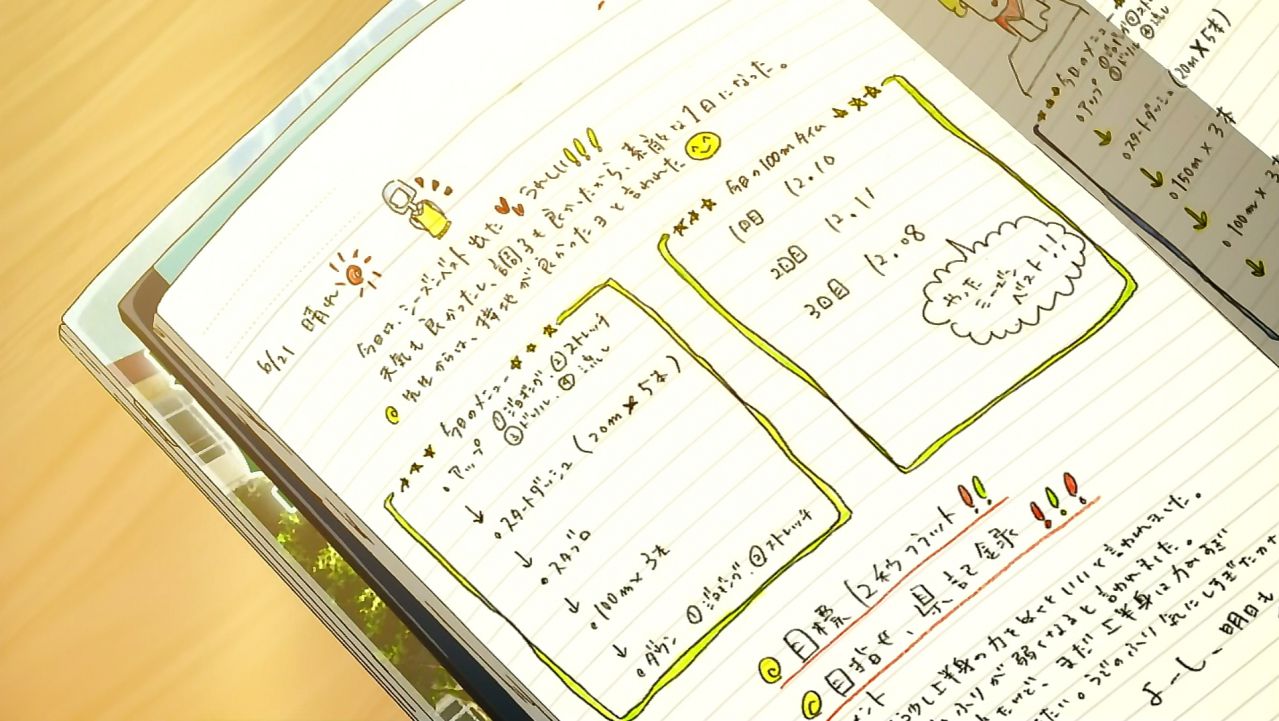 6/21 晴れ
今日は、シーズンベスト出た うれしい!!!
天気も良かったし、調子も良かったから、素敵な1日になった。
先生からは、接地が良かったよと言われた
今日のメニュー
・アップ ①ジョギング ②ストレッチ
③ドリル ④流し
↓
・スタートダッシュ (20m×5本)
↓
・スタブロ
↓
・100m×3本
↓
・ダウン ①ジョギング ②ストレッチ
今日の100mタイム
1回目 12.10
2回目 12.11
3回目 12.08
やった
シーズン
ベスト!!
目標 12秒フラット!!
目指せ、県記録!!!
コメント
もう少し上半身の力を抜くといいと言われました。
ふりが弱くなると言われました。
だけど、まだ上半身に力がすぎ
たい。うでのふり気にしすぎたかな
よーし、明日も
今日のメニュー
・アップ ①ジョギング ②スト
③ドリル ④流し
↓
・スタートダッシュ (20m×5本)
↓
・150m×3本
↓
・100m×3本
↓